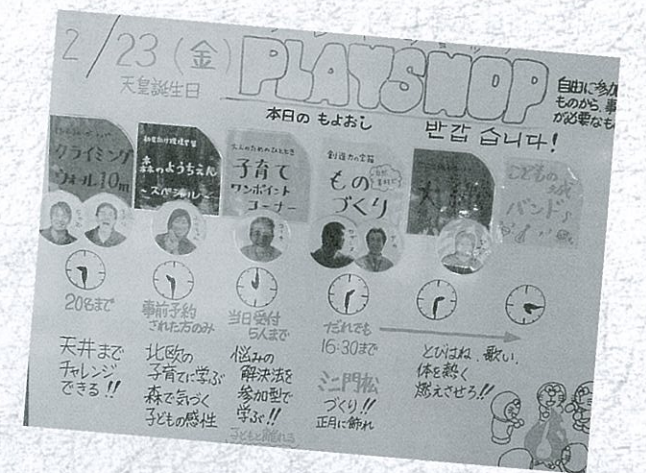 2/23(金)
天皇誕生日
PLAYSHOP
自由に参加
ものから、事
が必要なも
本日の もよおし
반갑 습니다!
クライミング
ウォール10m
森のようちえん
~スペシャル~
子育て
ワンポイント
コーナー
もの
づくり
こどもの城
バンド
20名まで
事前予約
された方のみ
当日受付
5人まで
だれでも
16:30まで
天井まで
チャレンジ
できる!!
北欧の
子育てに学ぶ
森で気づく
子どもの感性
悩みの
解決法を
参加型で
学ぶ!!
子どもと離れる
ミニ門松
づくり!!
正月に飾れ
とびはね、歌い、
体を熱く
燃えさせろ!!